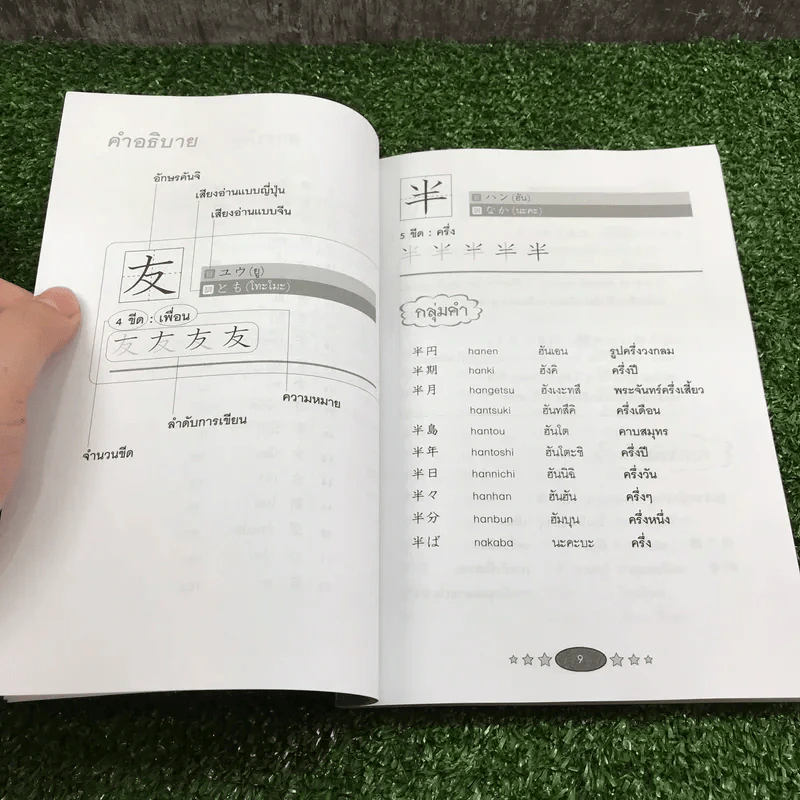 คำอธิบาย
อักษรคันจิ
เสียงอ่านแบบญี่ปุ่น
เสียงอ่านแบบจีน
友
音 ユウ (ยู)
訓 とも (โทะโมะ)
4 ขีด : เพื่อน
友 友 友 友
ความหมาย
ลำดับการเขียน
จำนวนขีด
半
音 ハン (ฮัน)
訓 なか (นะคะ)
5 ขีด : ครึ่ง
半 半 半 半 半
กลุ่มคำ
半円 hanen ฮันเอน รูปครึ่งวงกลม
半期 hanki ฮังคิ ครึ่งปี
半月 hangetsu ฮังเงะทสึ พระจันทร์ครึ่งเสี้ยว
hantsuki ฮันทสึคิ ครึ่งเดือน
半島 hantou ฮันโต คาบสมุทร
半年 hantoshi ฮันโตะชิ ครึ่งปี
半日 hannichi ฮันนิฉิ ครึ่งวัน
半々 hanhan ฮันฮัน ครึ่งๆ
半分 hanbun ฮัมบุน ครึ่งหนึ่ง
半ば nakaba นะคะบะ ครึ่ง
9